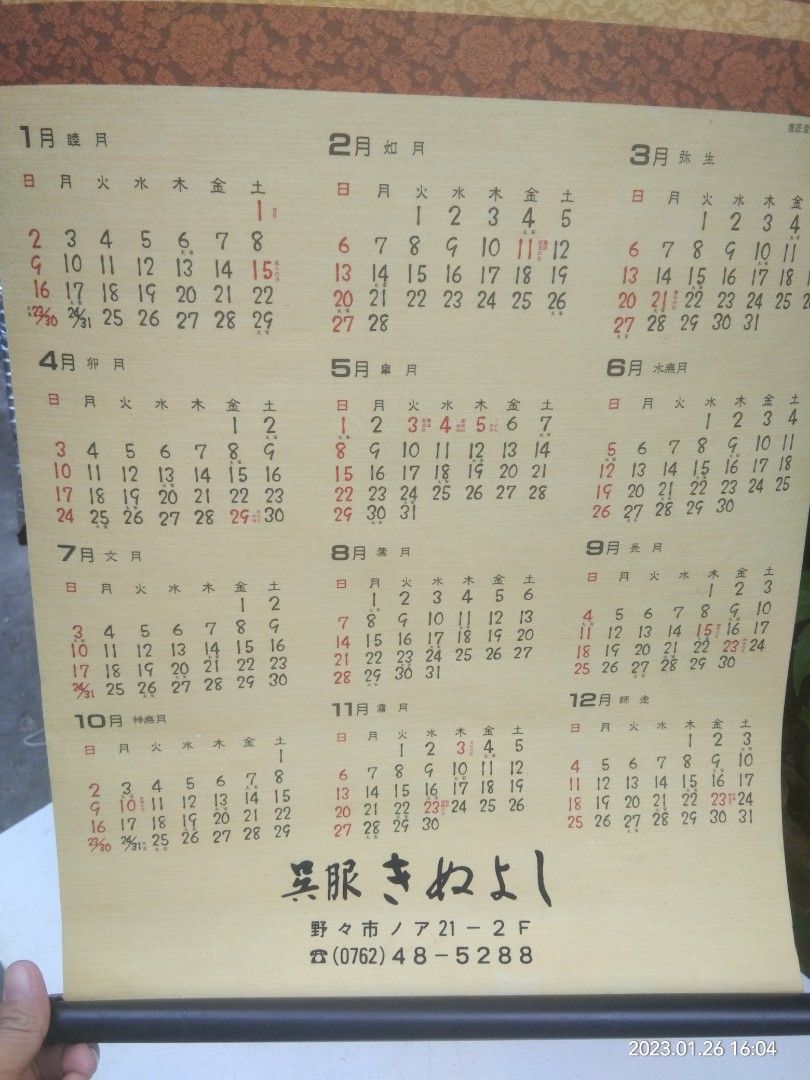 1月 睦月
日 月 火 水 木 金 土
1
2 3 4 5 6 7 8
9 10 11 12 13 14 15
16 17 18 19 20 21 22
23/30 24/31 25 26 27 28 29
2月 如月
日 月 火 水 木 金 土
1 2 3 4 5
6 7 8 9 10 11 12
13 14 15 16 17 18 19
20 21 22 23 24 25 26
27 28
3月 弥生
日 月 火 水 木 金
1 2 3 4
6 7 8 9 10 11
13 14 15 16 17 18
20 21 22 23 24 25
27 28 29 30 31
4月 卯月
日 月 火 水 木 金 土
1 2
3 4 5 6 7 8 9
10 11 12 13 14 15 16
17 18 19 20 21 22 23
24 25 26 27 28 29 30
5月 皐月
日 月 火 水 木 金 土
1 2 3 4 5 6 7
8 9 10 11 12 13 14
15 16 17 18 19 20 21
22 23 24 25 26 27 28
29 30 31
6月 水無月
日 月 火 水 木 金 土
1 2 3 4
5 6 7 8 9 10 11
12 13 14 15 16 17 18
19 20 21 22 23 24 25
26 27 28 29 30
7月 文月
日 月 火 水 木 金 土
1 2
3 4 5 6 7 8 9
10 11 12 13 14 15 16
17 18 19 20 21 22 23
24/31 25 26 27 28 29 30
8月 葉月
日 月 火 水 木 金 土
1 2 3 4 5 6
7 8 9 10 11 12 13
14 15 16 17 18 19 20
21 22 23 24 25 26 27
28 29 30 31
9月 長月
日 月 火 水 木 金 土
1 2 3
4 5 6 7 8 9 10
11 12 13 14 15 16 17
18 19 20 21 22 23 24
25 26 27 28 29 30
10月 神無月
日 月 火 水 木 金 土
1
2 3 4 5 6 7 8
9 10 11 12 13 14 15
16 17 18 19 20 21 22
23/30 24/31 25 26 27 28 29
11月 霜月
日 月 火 水 木 金 土
1 2 3 4 5
6 7 8 9 10 11 12
13 14 15 16 17 18 19
20 21 22 23 24 25 26
27 28 29 30
12月 師走
日 月 火 水 木 金 土
1 2 3
4 5 6 7 8 9 10
11 12 13 14 15 16 17
18 19 20 21 22 23 24
25 26 27 28 29 30 31
呉服 きぬよし
野々市ノア21-2F
☎(0762)48-5288
2023.01.26 16:04